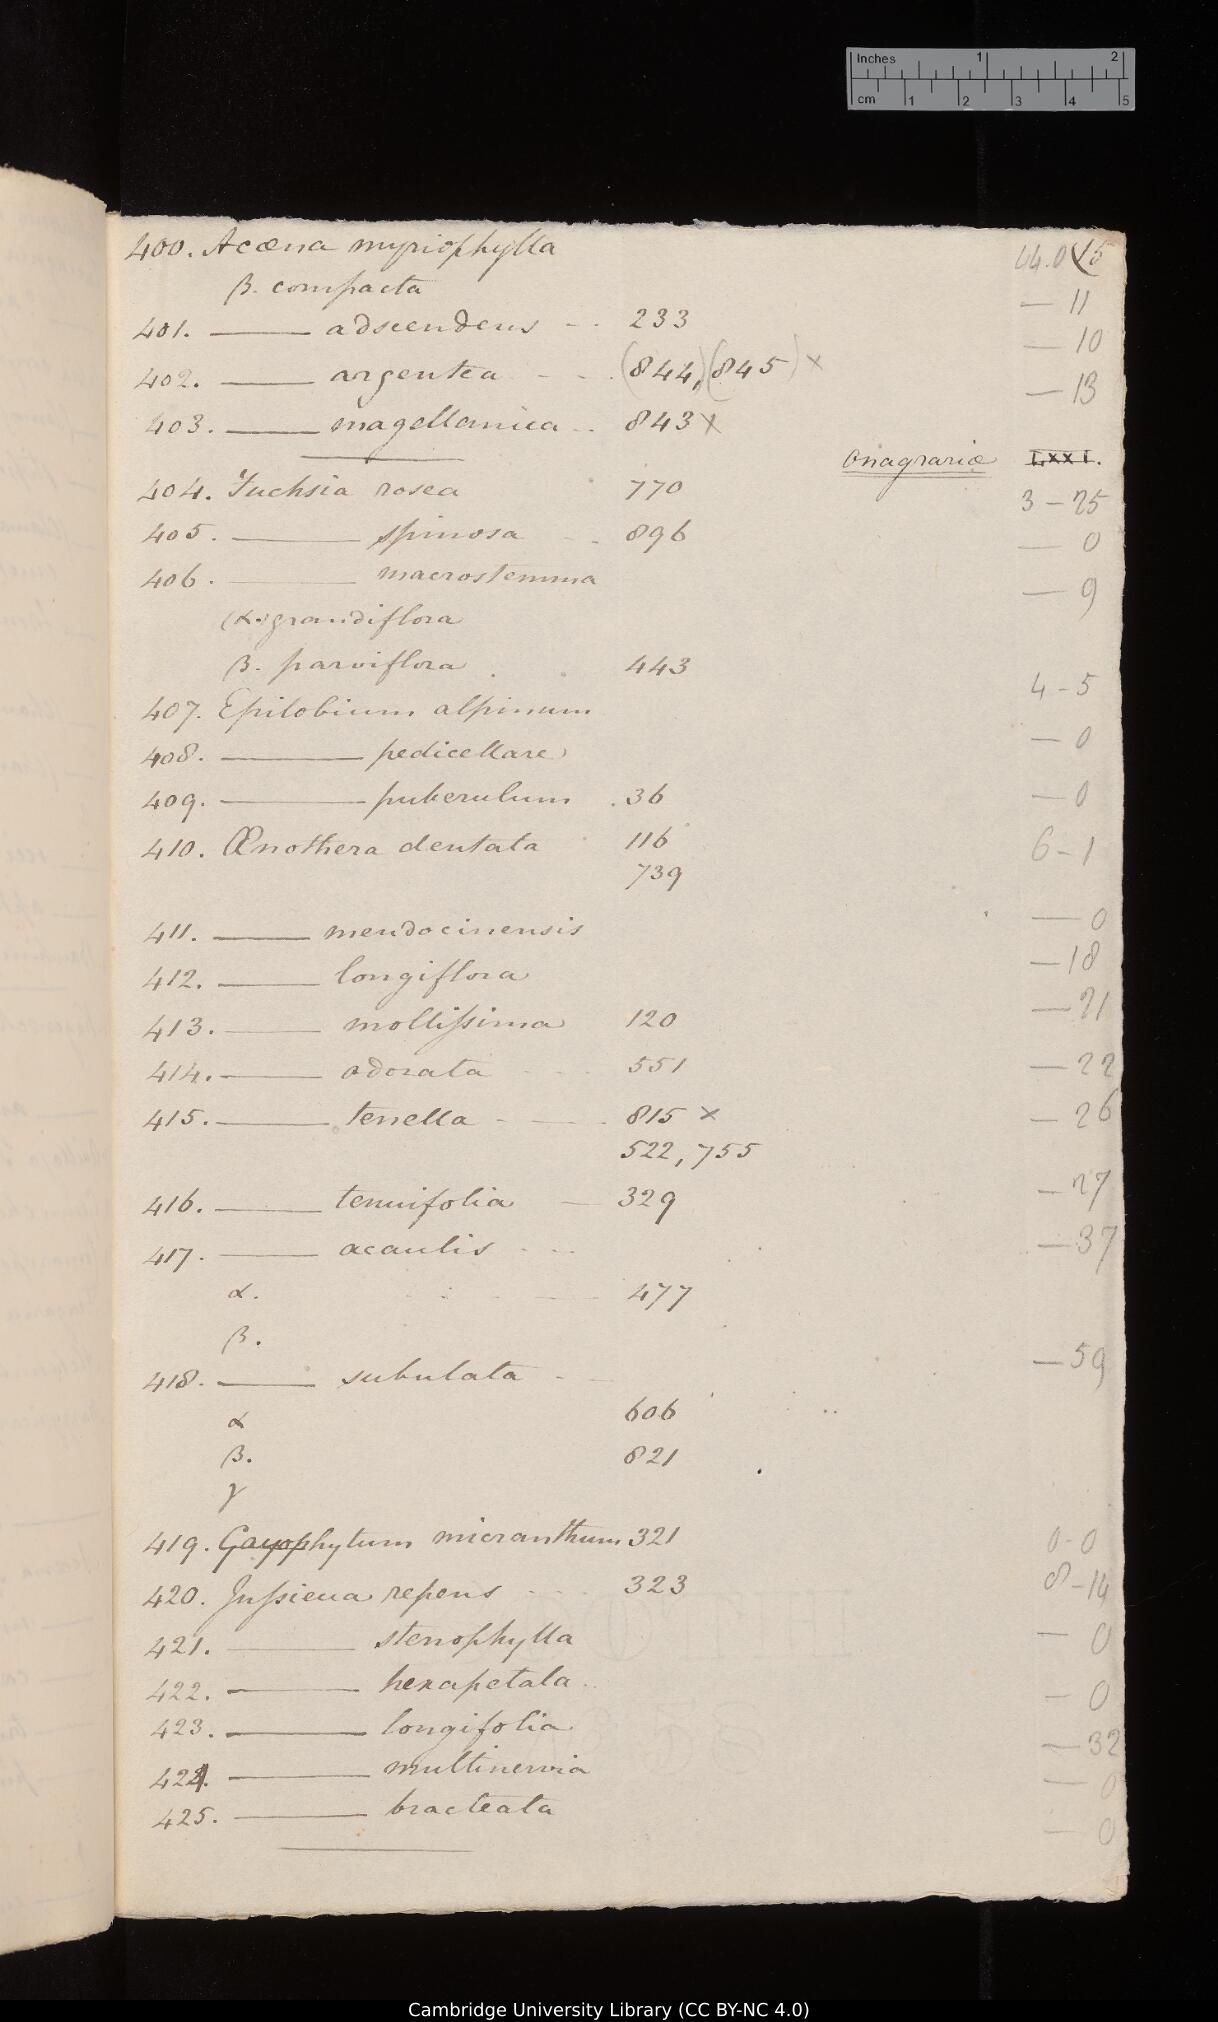 Inches 1 2
cm 1 2 3 4 5
400. Acæna myriophylla 15
β. compacta — 11
401. —— adscendens - - 233 — 10
402. —— argentea - - - (844,)(845) × — 13
403. —— magellanica - - 843 ×
Onagrariæ LXXI.
404. Fuchsia rosea 770 3 - 25
405. —— spinosa - - 896 — 0
406. —— macrostemma — 9
(α.) grandiflora
β. parviflora 443
407. Epilobium alpinum 4 - 5
408. —— pedicellare — 0
409. —— puberulum . 36 — 0
410. Œnothera dentata 116 6 - 1
739
411. —— mendocinensis — 0
412. —— longiflora — 18
413. —— mollissima 120 — 21
414. —— odorata - - - 551 — 22
415. —— tenella - — 815 × — 26
522, 755
416. —— tenuifolia — 329 — 27
417. —— acaulis - - - — 37
α. 477
β.
418. —— subulata - — — 59
α 606
β. 821
γ
419. Gayophytum micranthum 321 0 - 0
420. Jussieua repens - - - 323 8 - 14
421. —— stenophylla — 0
422. —— hexapetala - 0
423. —— longifolia — 32
424. —— multinervia — 0
425. —— bracteata — 0
Cambridge University Library (CC BY-NC 4.0)